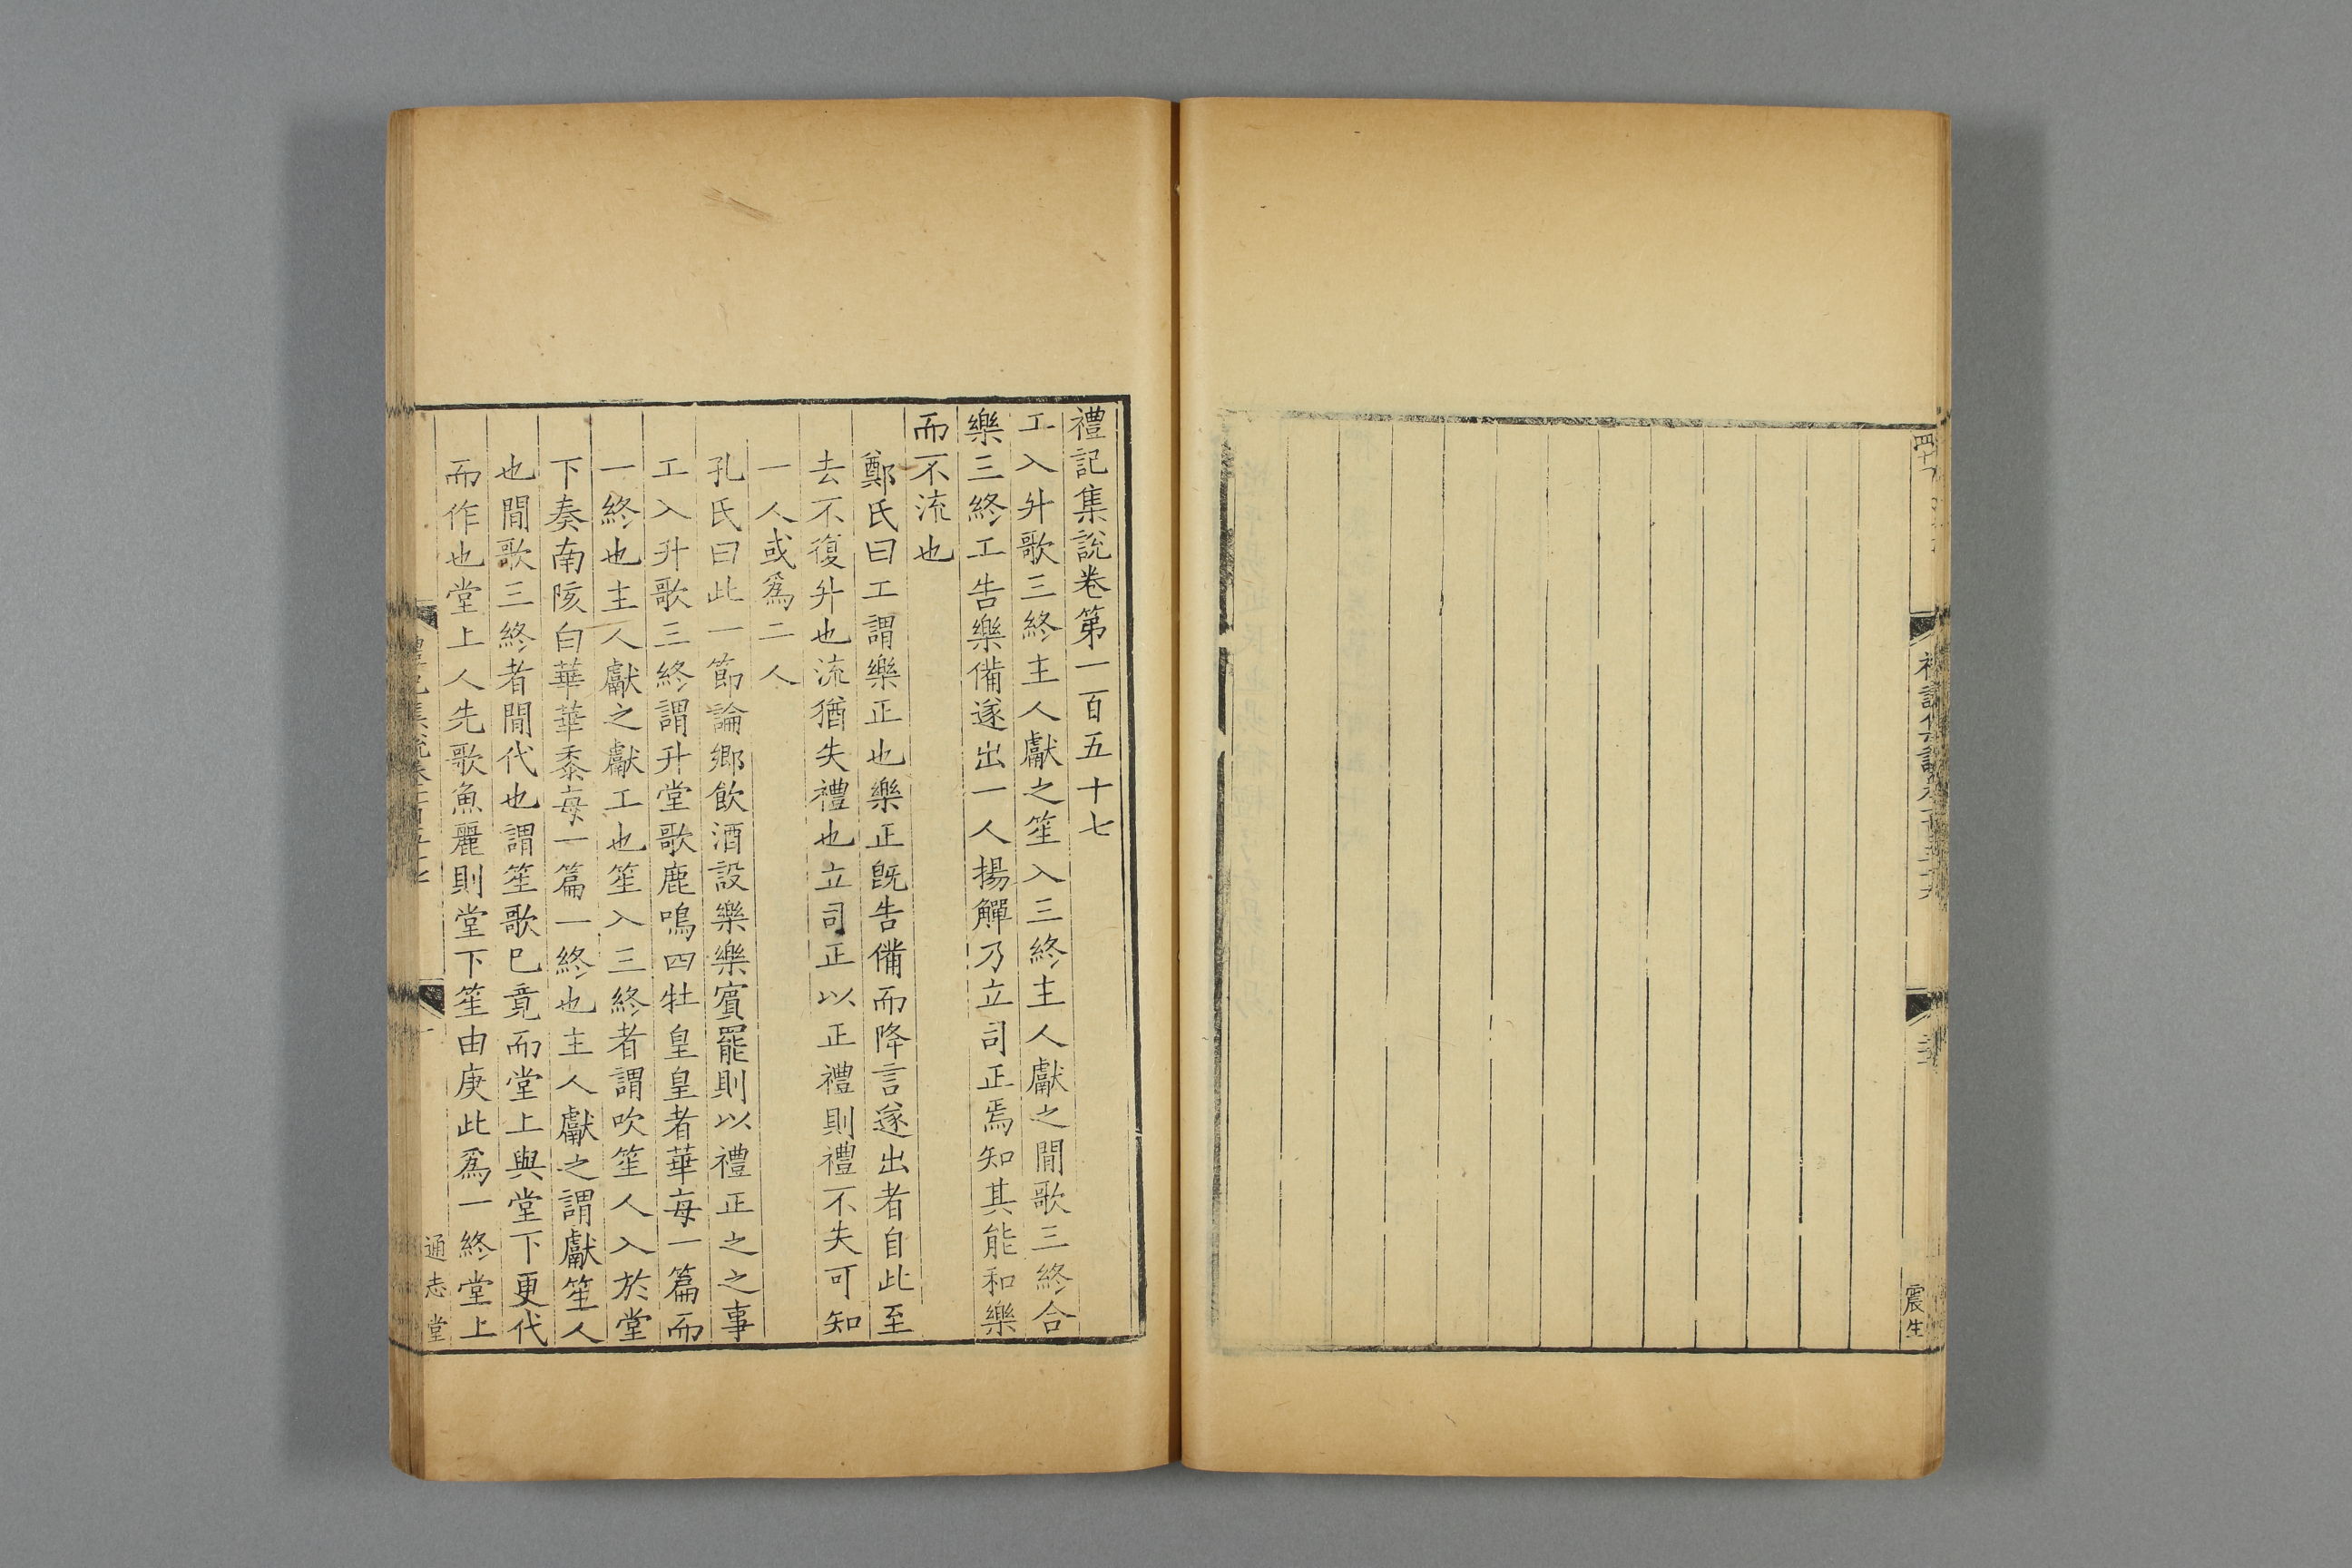 震生
禮記集說卷第一百五十七
工入升歌三終主人獻之笙入三終主人獻之閒歌三終合
樂三終工告樂備遂出一人揚觶乃立司正焉知其能和樂
而不流也
鄭氏曰工謂樂正也樂正旣告備而降言遂出者自此至
去不復升也流猶失禮也立司正以正禮則禮不失可知
一人或爲二人
孔氏曰此一節論鄉飲酒設樂樂賓罷則以禮正之之事
工入升歌三終謂升堂歌鹿鳴四牡皇皇者華每一篇而
一終也主人獻之獻工也笙入三終者謂吹笙人入於堂
下奏南陔白華華黍每一篇一終也主人獻之謂獻笙人
也閒歌三終者閒代也謂笙歌已竟而堂上與堂下更代
而作也堂上人先歌魚麗則堂下笙由庚此爲一終堂上
通志堂